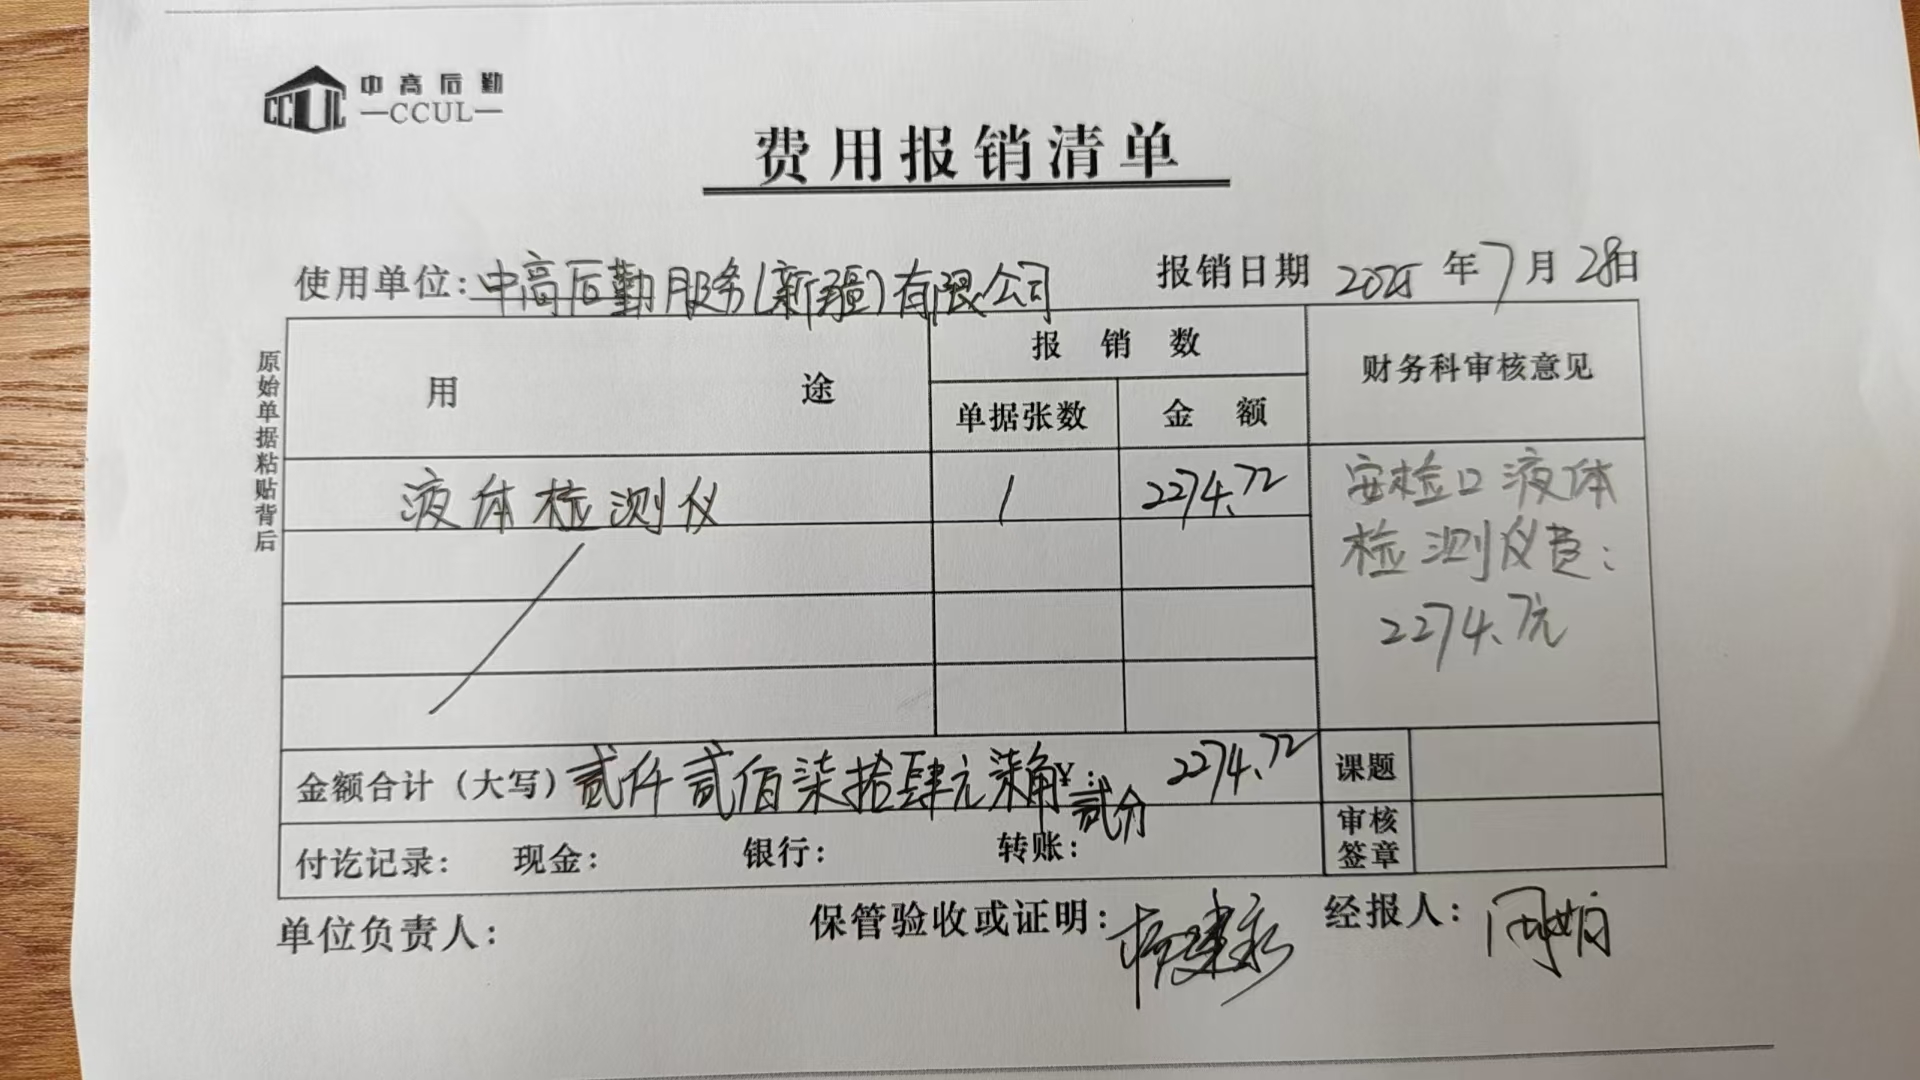 中高后勤
CCUL —CCUL—
费用报销清单
使用单位:中高后勤服务(新疆)有限公司 报销日期 2025年7月28日
原始单据粘贴背后
用途 报销数 财务科审核意见
单据张数 金额
液体检测仪 1 2274.72
安检口液体
检测仪费:
2274.7元
金额合计(大写)贰仟贰佰柒拾肆元柒角贰分 ¥:2274.72 课题
付讫记录: 现金: 银行: 转账: 审核签章
单位负责人: 保管验收或证明: 经报人: